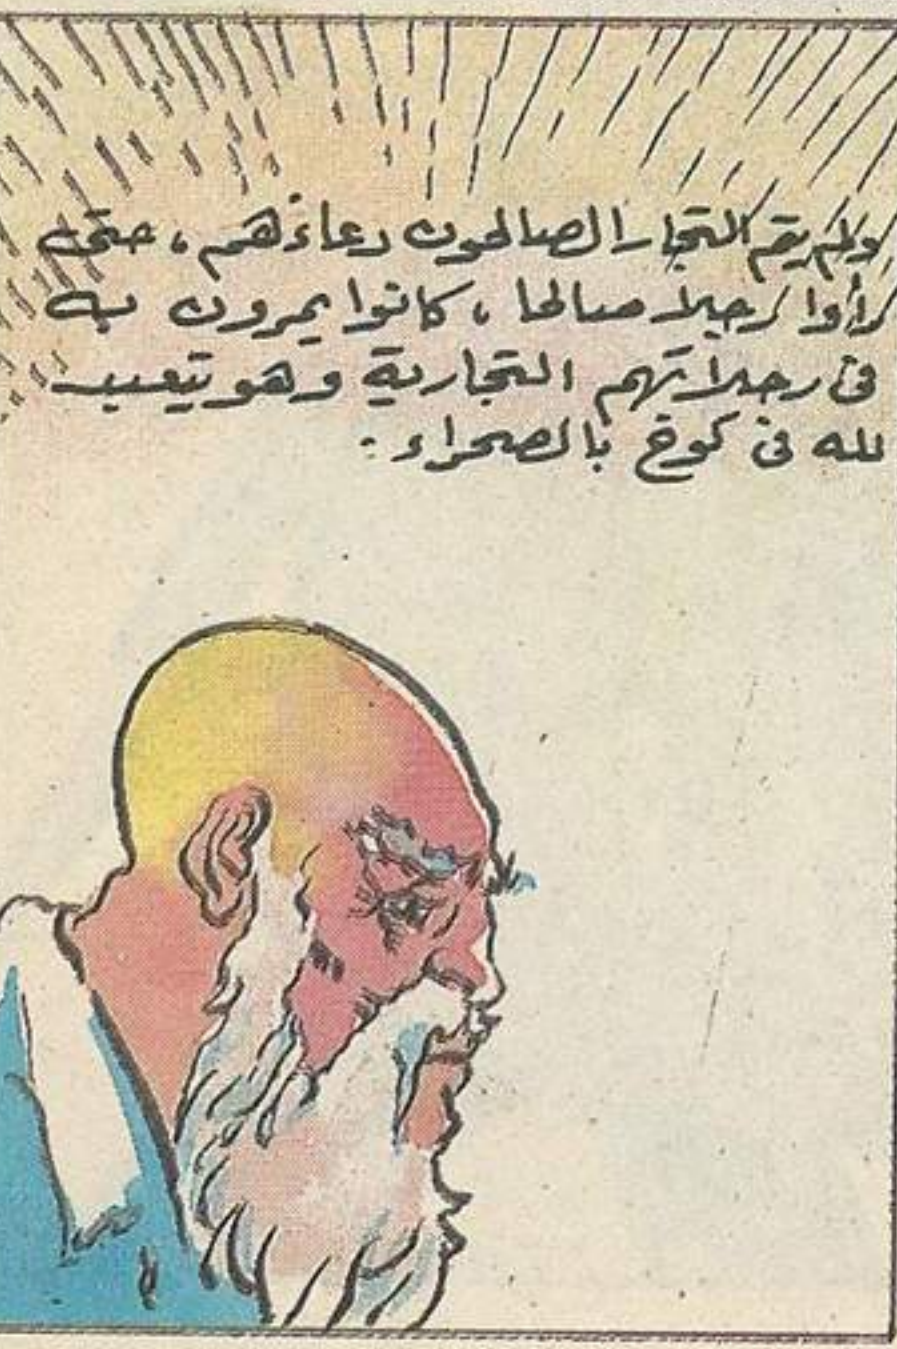 ولم يتم التجار الصالحون دعاءهم، حتى
رأوا رجلا صالحا، كانوا يمرون به
فى رحلاتهم التجارية وهو يتعبد
لله فى كوخ بالصحراء.